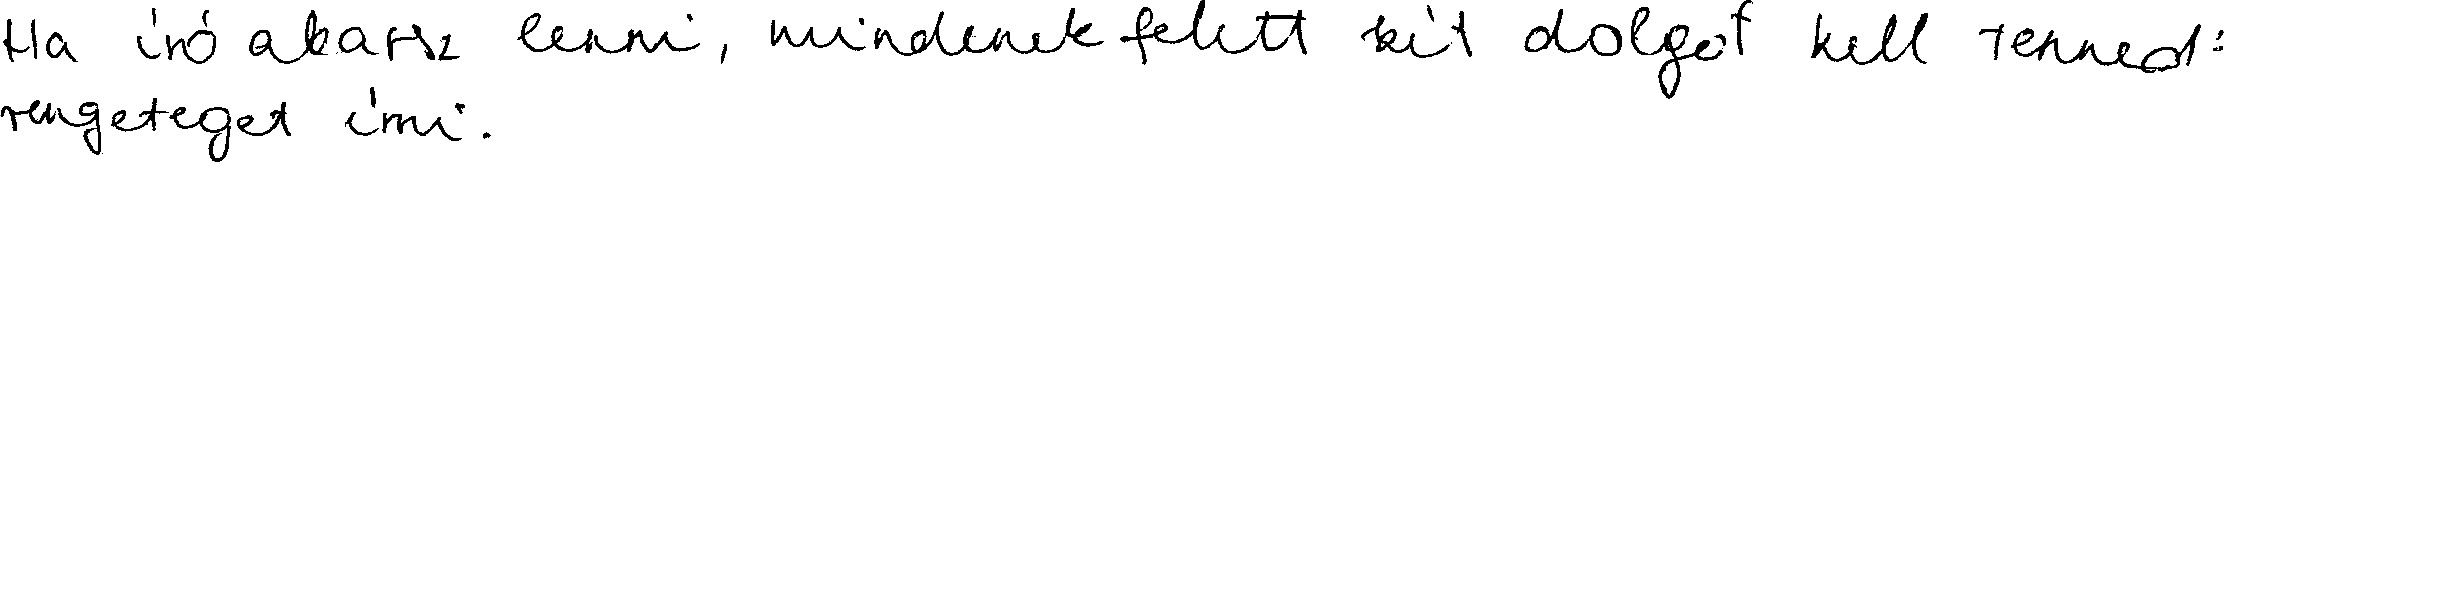 Ha író akarsz lenni, mindenekfelett két dolgot kell tenned:
rengeteget írni.